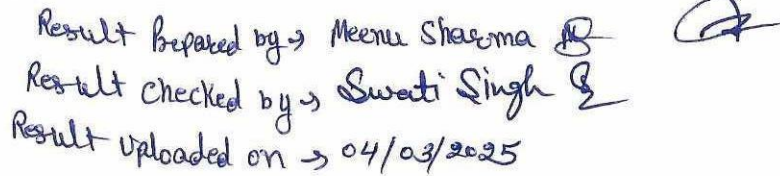 Result Prepared by → Meenu Sharma
Result checked by → Swati Singh
Result Uploaded on → 04/03/2025